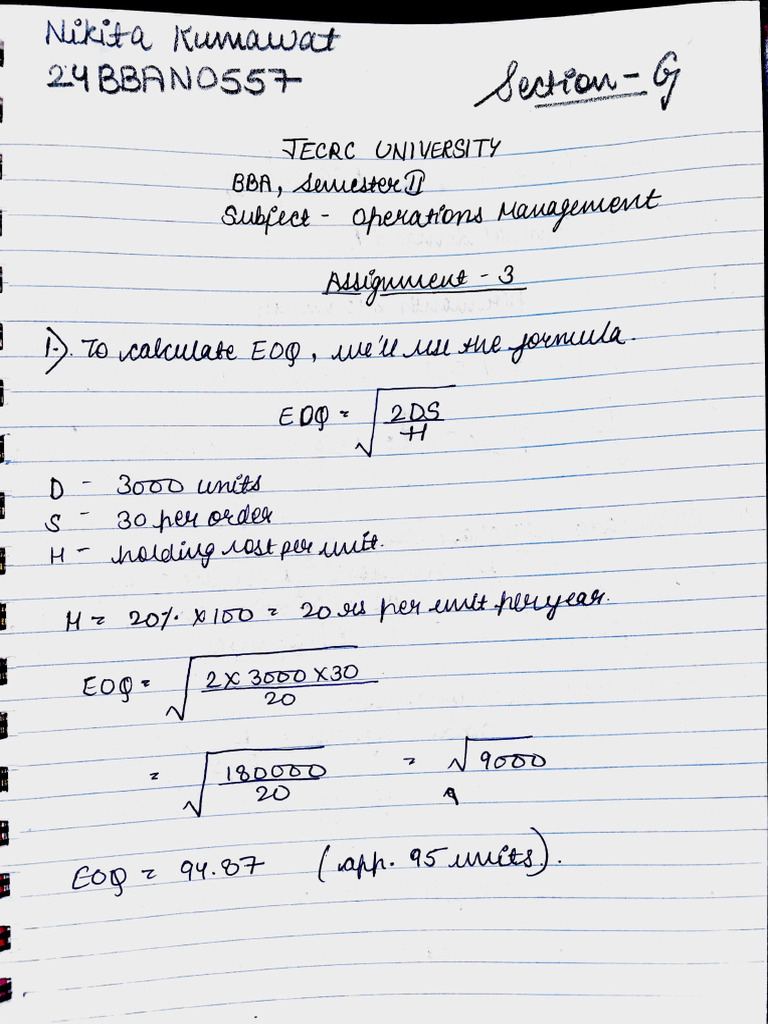 Nikita Kumawat
24BBAN0557
Section - G
JECRC UNIVERSITY
BBA, Semester II
Subject - Operations Management
Assignment - 3
1). To calculate EOQ, we'll use the formula.
EOQ = √(2DS/H)
D - 3000 units
S - 30 per order
H - holding cost per unit.
H = 20% × 100 = 20 rs per unit per year.
EOQ = √(2 × 3000 × 30/20)
= √(180000/20) = √9000
EOQ = 94.87 (app. 95 units).